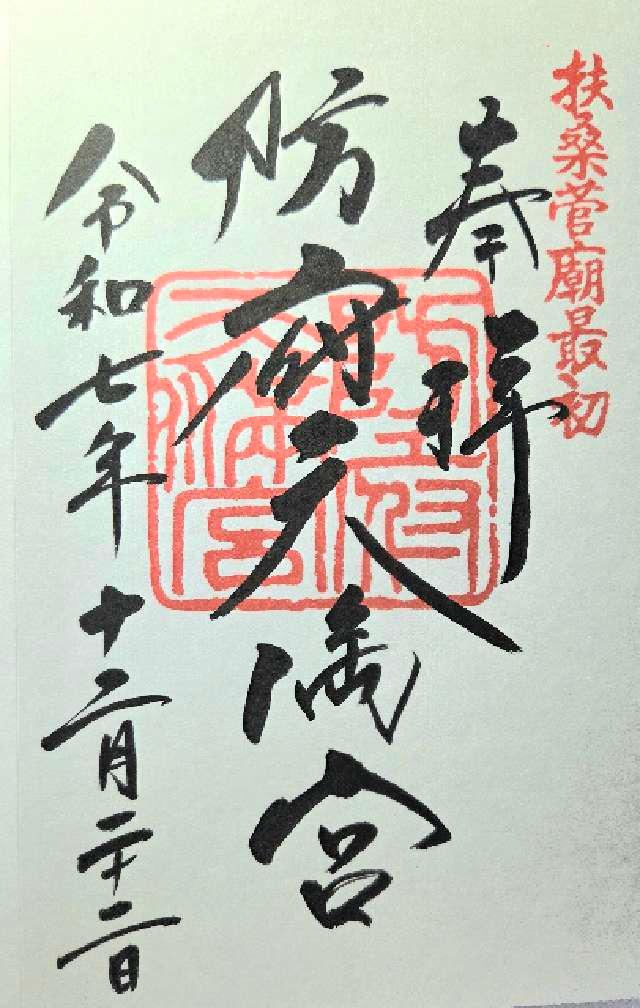 扶桑菅廟最初
奉拝
防府天満宮
令和七年十二月二十二日
防府天満宮